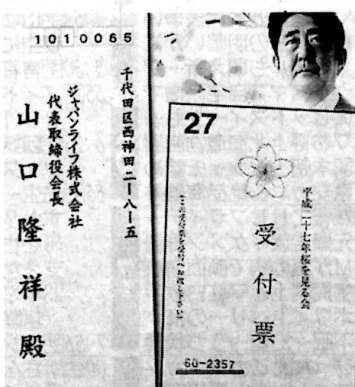 1010065
千代田区西神田二ー八ー五
ジャパンライフ株式会社
代表取締役会長
山口隆祥殿
27
平成二十七年桜を見る会
受付票
60-2357